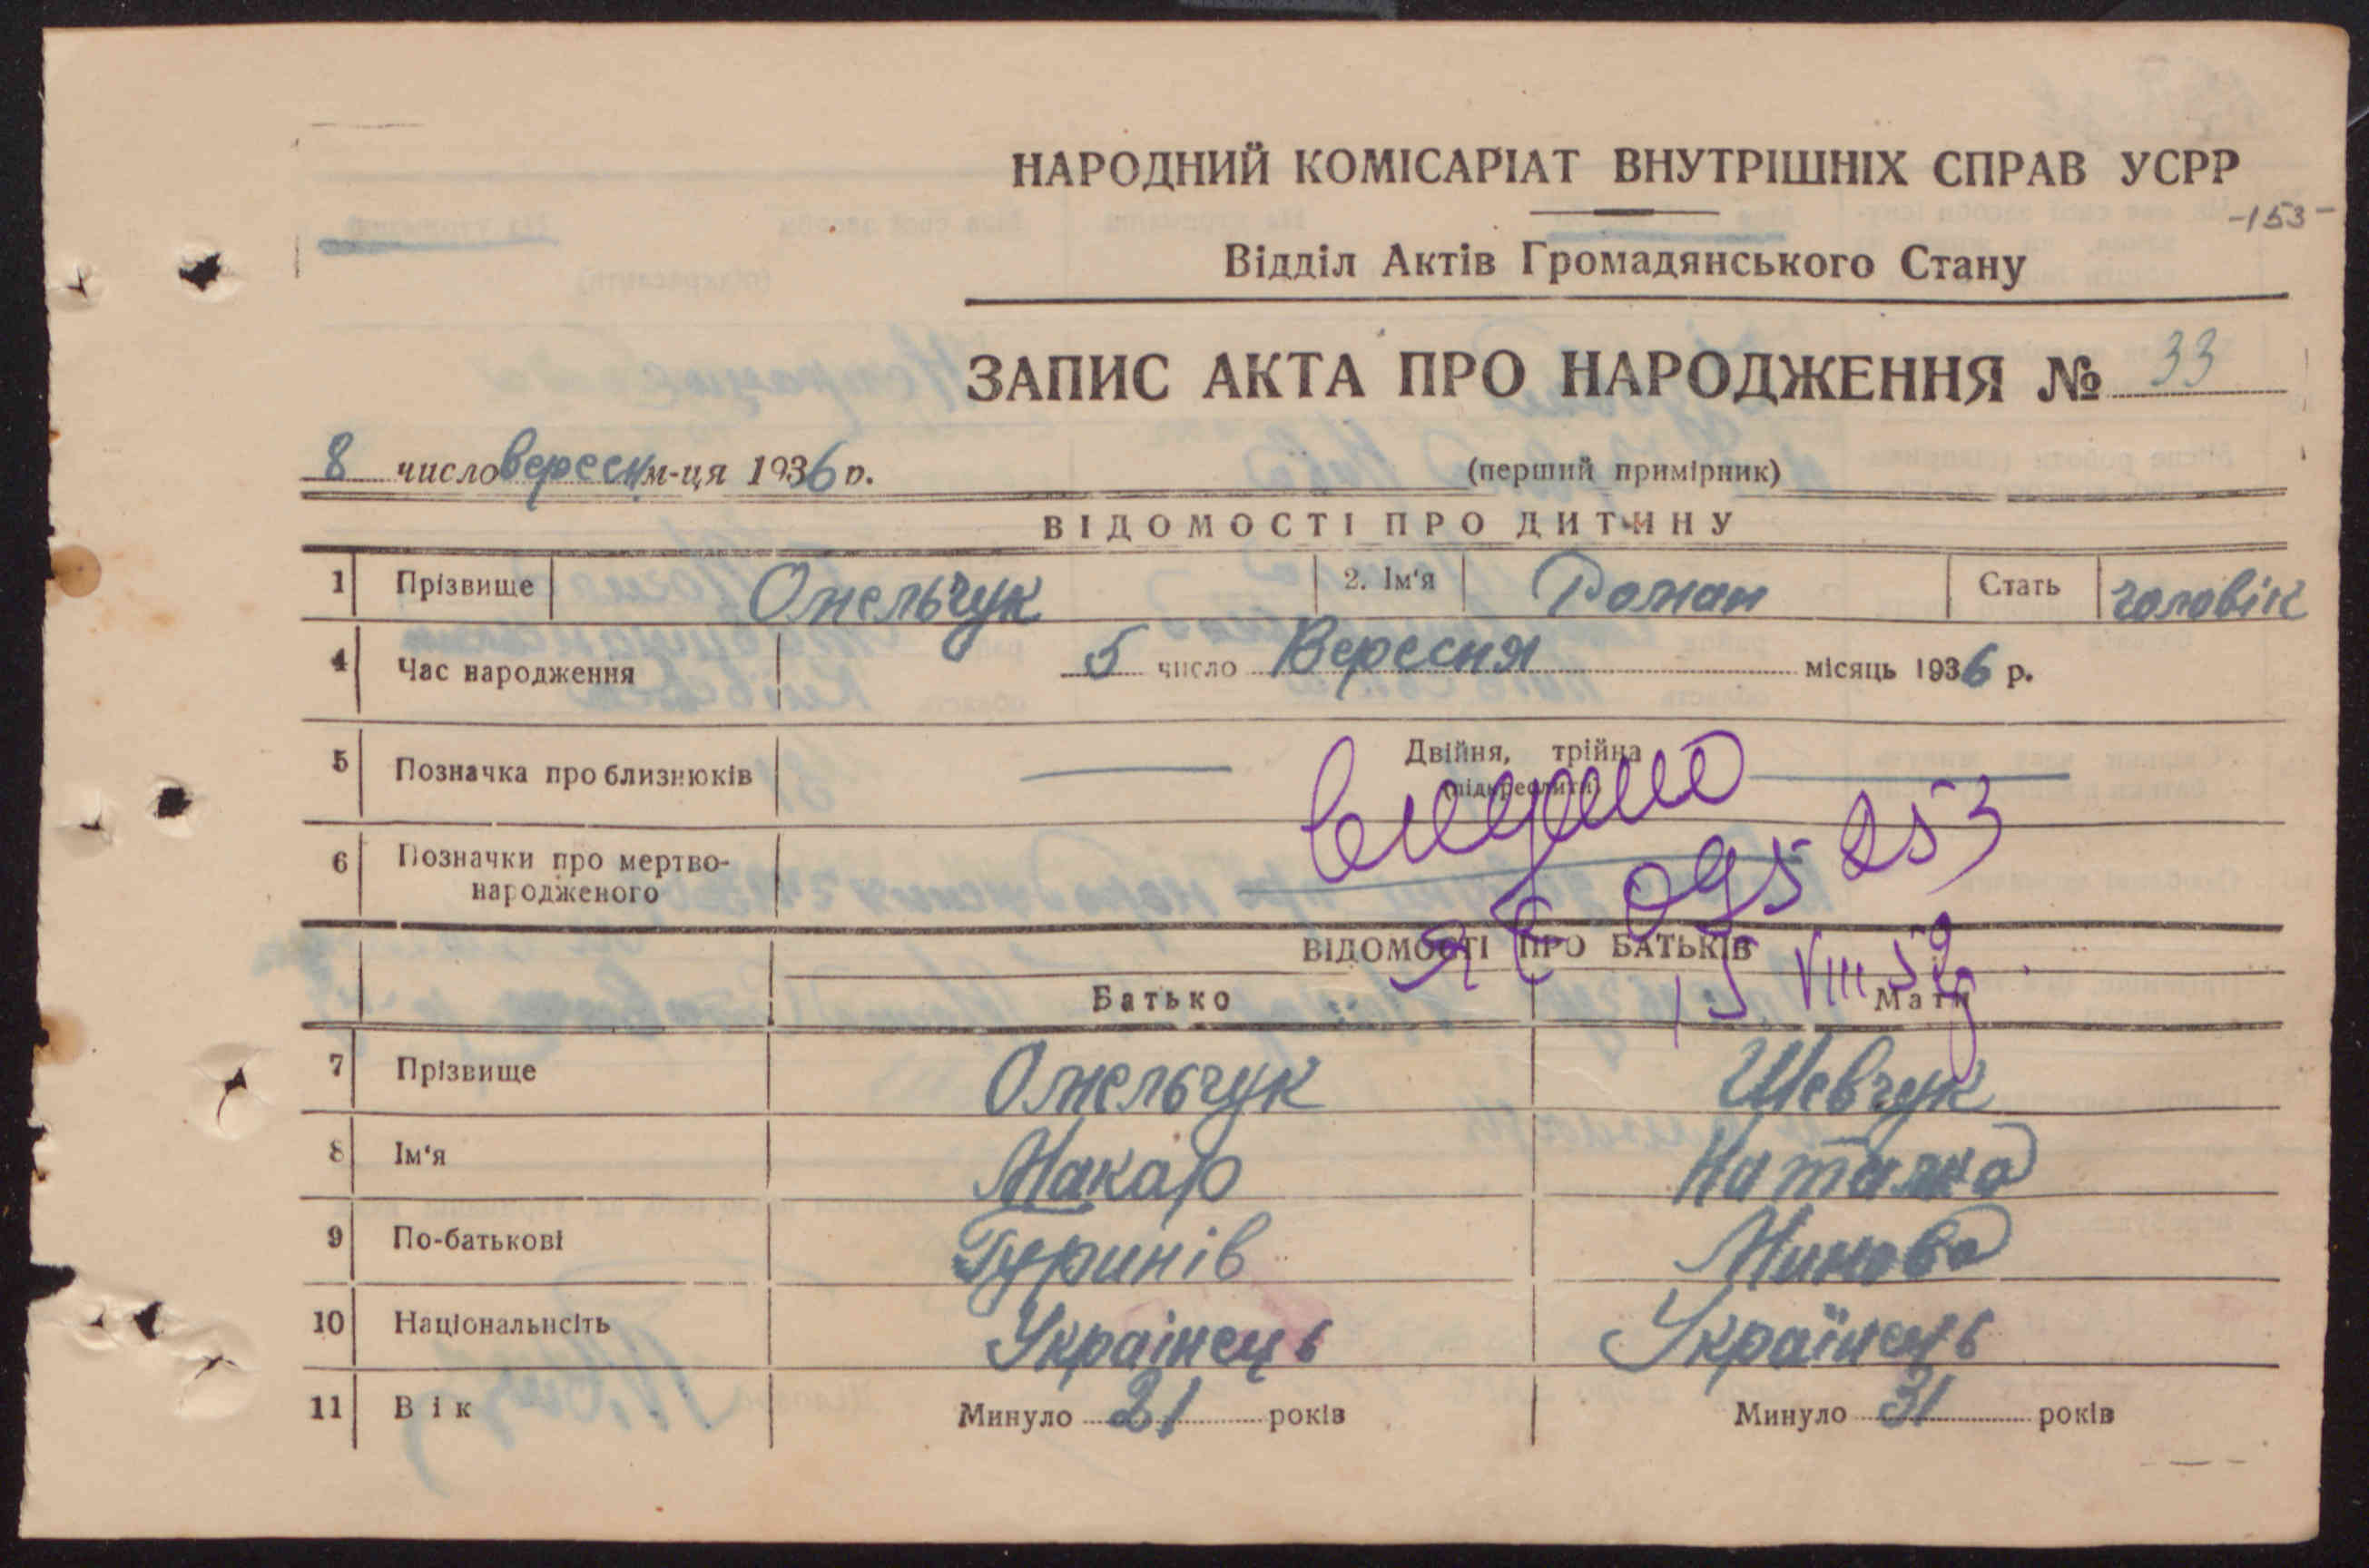 НАРОДНИЙ КОМІСАРІАТ ВНУТРІШНІХ СПРАВ УСРР
-153-
Відділ Актів Громадянського Стану
ЗАПИС АКТА ПРО НАРОДЖЕННЯ № 33
8 число вересн м-ця 1936 р.
(перший примірник)
ВІДОМОСТІ ПРО ДИТИНУ
1 Прізвище Омельчук 2. Ім'я Роман Стать чоловік
4 Час народження 5 число Вересня місяць 1936 р.
5 Позначка про близнюків Двійня, трійна
(підкреслити)
видано
6 Позначки про мертво-
народженого
ЯЄ 095253
ВІДОМОСТІ ПРО БАТЬКІВ
15 VIII 52
Батько Мати
7 Прізвище Омельчук Шевчук
8 Ім'я Макар Наталка
9 По-батькові Гуринів
10 Національнсіть Украінець Українець
11 Вік Минуло 21 років Минуло 31 років